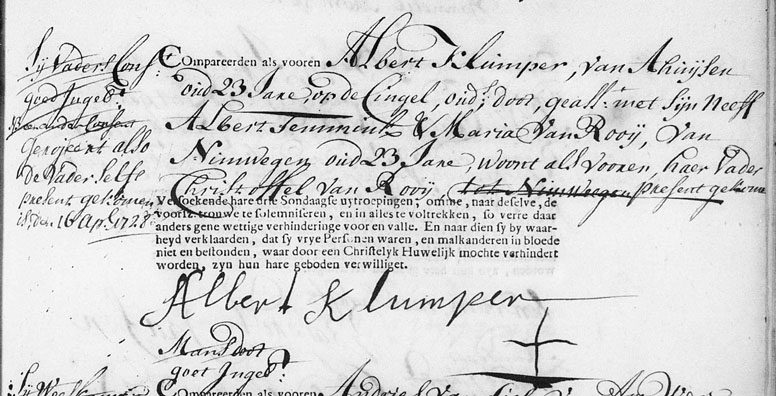 Sij Vaders Cons.t
goet Ingeb.t
gerejeert also
de Vader selfs
present gekomen
is den 16 Apr. 1728
Compareerden als vooren Albert Klumper, van Ahuijsen
oud 23 Jare, op de Cingel, oud.s doot, geass.t met sijn Neeff
Albert Temmink & Maria van Rooij, van
Nimwegen oud 23 Jare, woont als vooren, haer Vader
Christoffel van Rooij, tot Nimwegen present gekome
Versoekende hare drie Sondaagse uytroepingen; omme, naar deselve, de
voorsz. trouwe te solemniseren, en in alles te voltrekken, so verre daar
anders gene wettige verhinderinge voor en valle. En naar dien sy by waar-
heyd verklaarden, dat sy vrye Persoonen waren, en malkanderen in bloede
niet en bestonden, waar door een Christelyk Huwelijk mochte verhindert
worden, zyn hun hare geboden verwilliget.
Albert Klumper
Mans doot
goet Ingeb.t
Compareerden als vooren Andries van